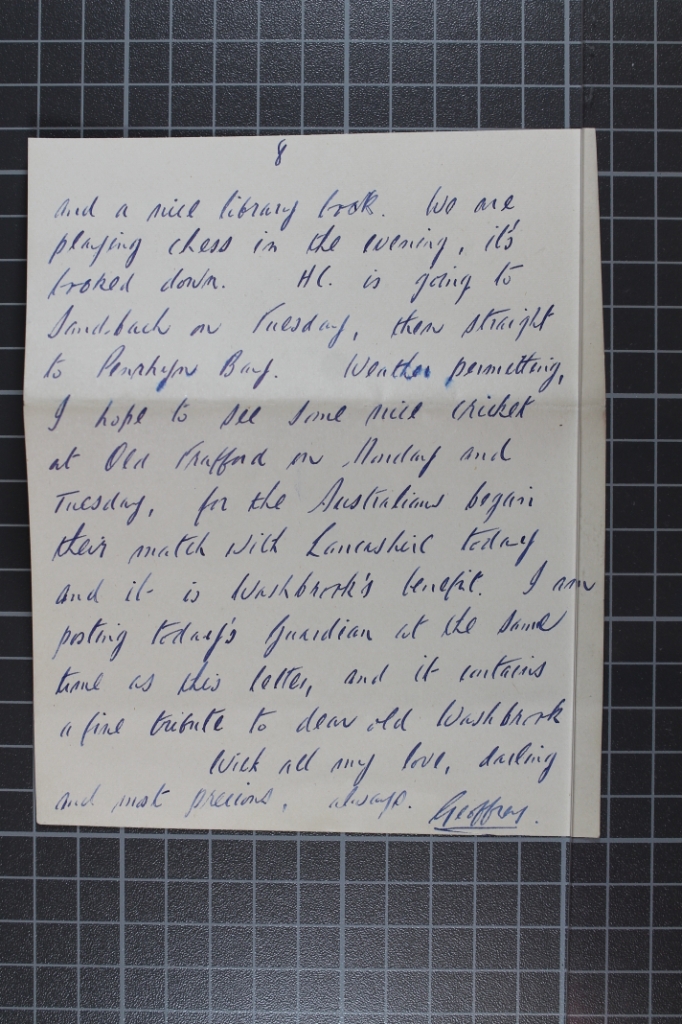 8
and a nice library book. We are
playing chess in the evening, it's
booked down. HC. is going to
Sandbach on Tuesday, then straight
to Penrhyn Bay. Weather permitting,
I hope to see some nice cricket
at Old Trafford on Monday and
Tuesday, for the Australians began
their match with Lancashire today
and it is Washbrook's benefit. I am
posting today's Guardian at the same
time as this letter, and it contains
a fine tribute to dear old Washbrook
With all my love, darling
and most precious, always. Geoffrey.